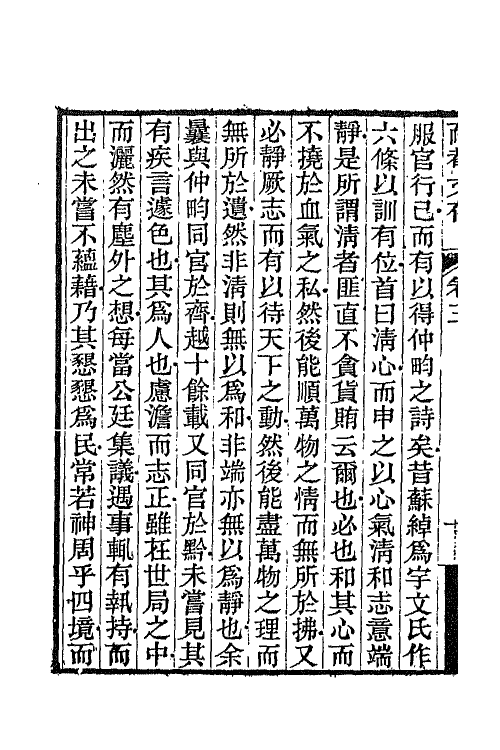 服官行己而有以得仲畇之詩矣昔蘇綽爲宇文氏作
六條以訓有位首曰淸心而申之以心氣淸和志意端
靜是所謂淸者匪直不貪貨賄云爾也必也和其心而
不撓於血氣之私然後能順萬物之情而無所於拂又
必靜厥志而有以待天下之動然後能盡萬物之理而
無所於遺然非淸則無以爲和非端亦無以爲靜也余
曩與仲畇同官於齊越十餘載又同官於黔未嘗見其
有疾言遽色也其爲人也慮澹而志正雖在世局之中
而灑然有塵外之想每當公廷集議遇事輒有執持而
出之未嘗不蘊藉乃其懇懇爲民常若神周乎四境而